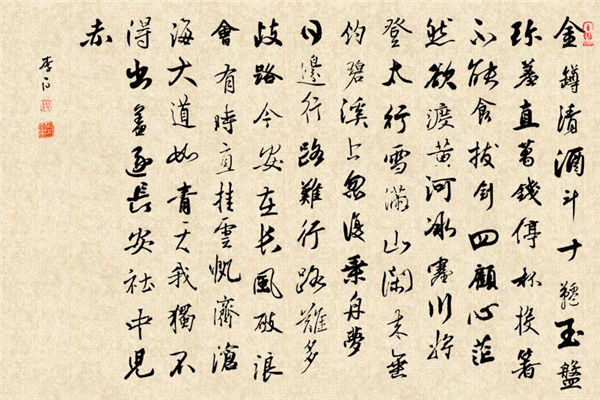 金罇清酒斗十韆玉盤
珎羞直萬錢停杯投箸
不能食拔劍四顧心茫
然欲渡黃河冰塞川將
登太行雪滿山閑來垂
釣碧溪上忽復乘舟夢
日邊行路難行路難多
歧路今安在長風破浪
會有時直挂雲帆濟滄
海大道如青天我獨不
得出羞逐長安社中兒
赤
李白